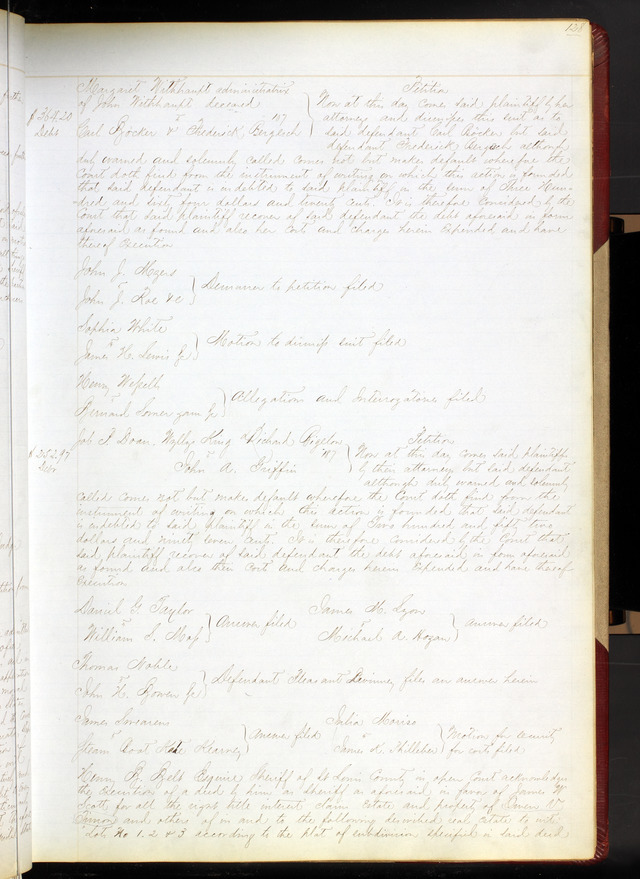 128
Margaret Withhaupt administratrix Petition
of John Withhaupt deceased Now at this day comes said plaintiff by her
$364.20 vs 127 attorney and dismisses this suit as to
Debt Carl Böcker & Frederick Bergesch said defendant Carl Böcker but said
defendant Frederick Bergesch although
duly warned and solemnly called comes not but makes default wherefore the
Court doth find from the instrument of writing on which this action is founded
that said defendant is indebted to said plaintiff in the sum of three Hun-
dred and sixty four dollars and twenty cents. It is therefore Considered by the
Court that said plaintiff recover of said defendant the debt aforesaid in form
aforesaid as found and also her Cost and charges herein expended and have
thereof Execution
John J. Myers
vs Demurrer to petition filed
John J. Roe &c
Sophia White
vs Motion to dismiss suit filed
James H. Lewis Jr
Henry
vs Allegations and Interrogatories filed
Bernard
Job T Doan, Wyllys King & Richard Bigelow Petition
$252.97 vs 117 Now at this day comes said plaintiffs
Debt John A. Griffin by their attorney but said defendant
although duly warned and solemnly
called comes not but makes default wherefore the Court doth find from the
instrument of writing on which this action is founded that said defendant
is indebted to said plaintiff in the sum of Two hundred and fifty two
dollars and ninety seven cents. It is therefore Considered by the Court that
said plaintiff recover of said defendant the debt aforesaid in form aforesaid
as found and also their Cost and charges herein Expended and have thereof
Execution
Daniel G. Taylor James H. Lyon
vs Answer filed vs answer filed
William S. Michael A. Hogan
Thomas Noble
vs Defendant Pleasant Devinney files an answer herein
John H. Bowen Jr
James Julia
vs Answer filed vs Motion for security
Steam Boat Kate Kearney James for costs filed
Henry B. Belt Esquire Sheriff of St Louis County, in open Court acknowledges
the Execution of a deed by him as Sheriff as aforesaid in favor of James W
Scott, for all the right title interest claim Estate and property of
and others of in and to the following described real estate to wit:
Lots No 1. 2 & 3 according to the plat of subdivision specified in said deed